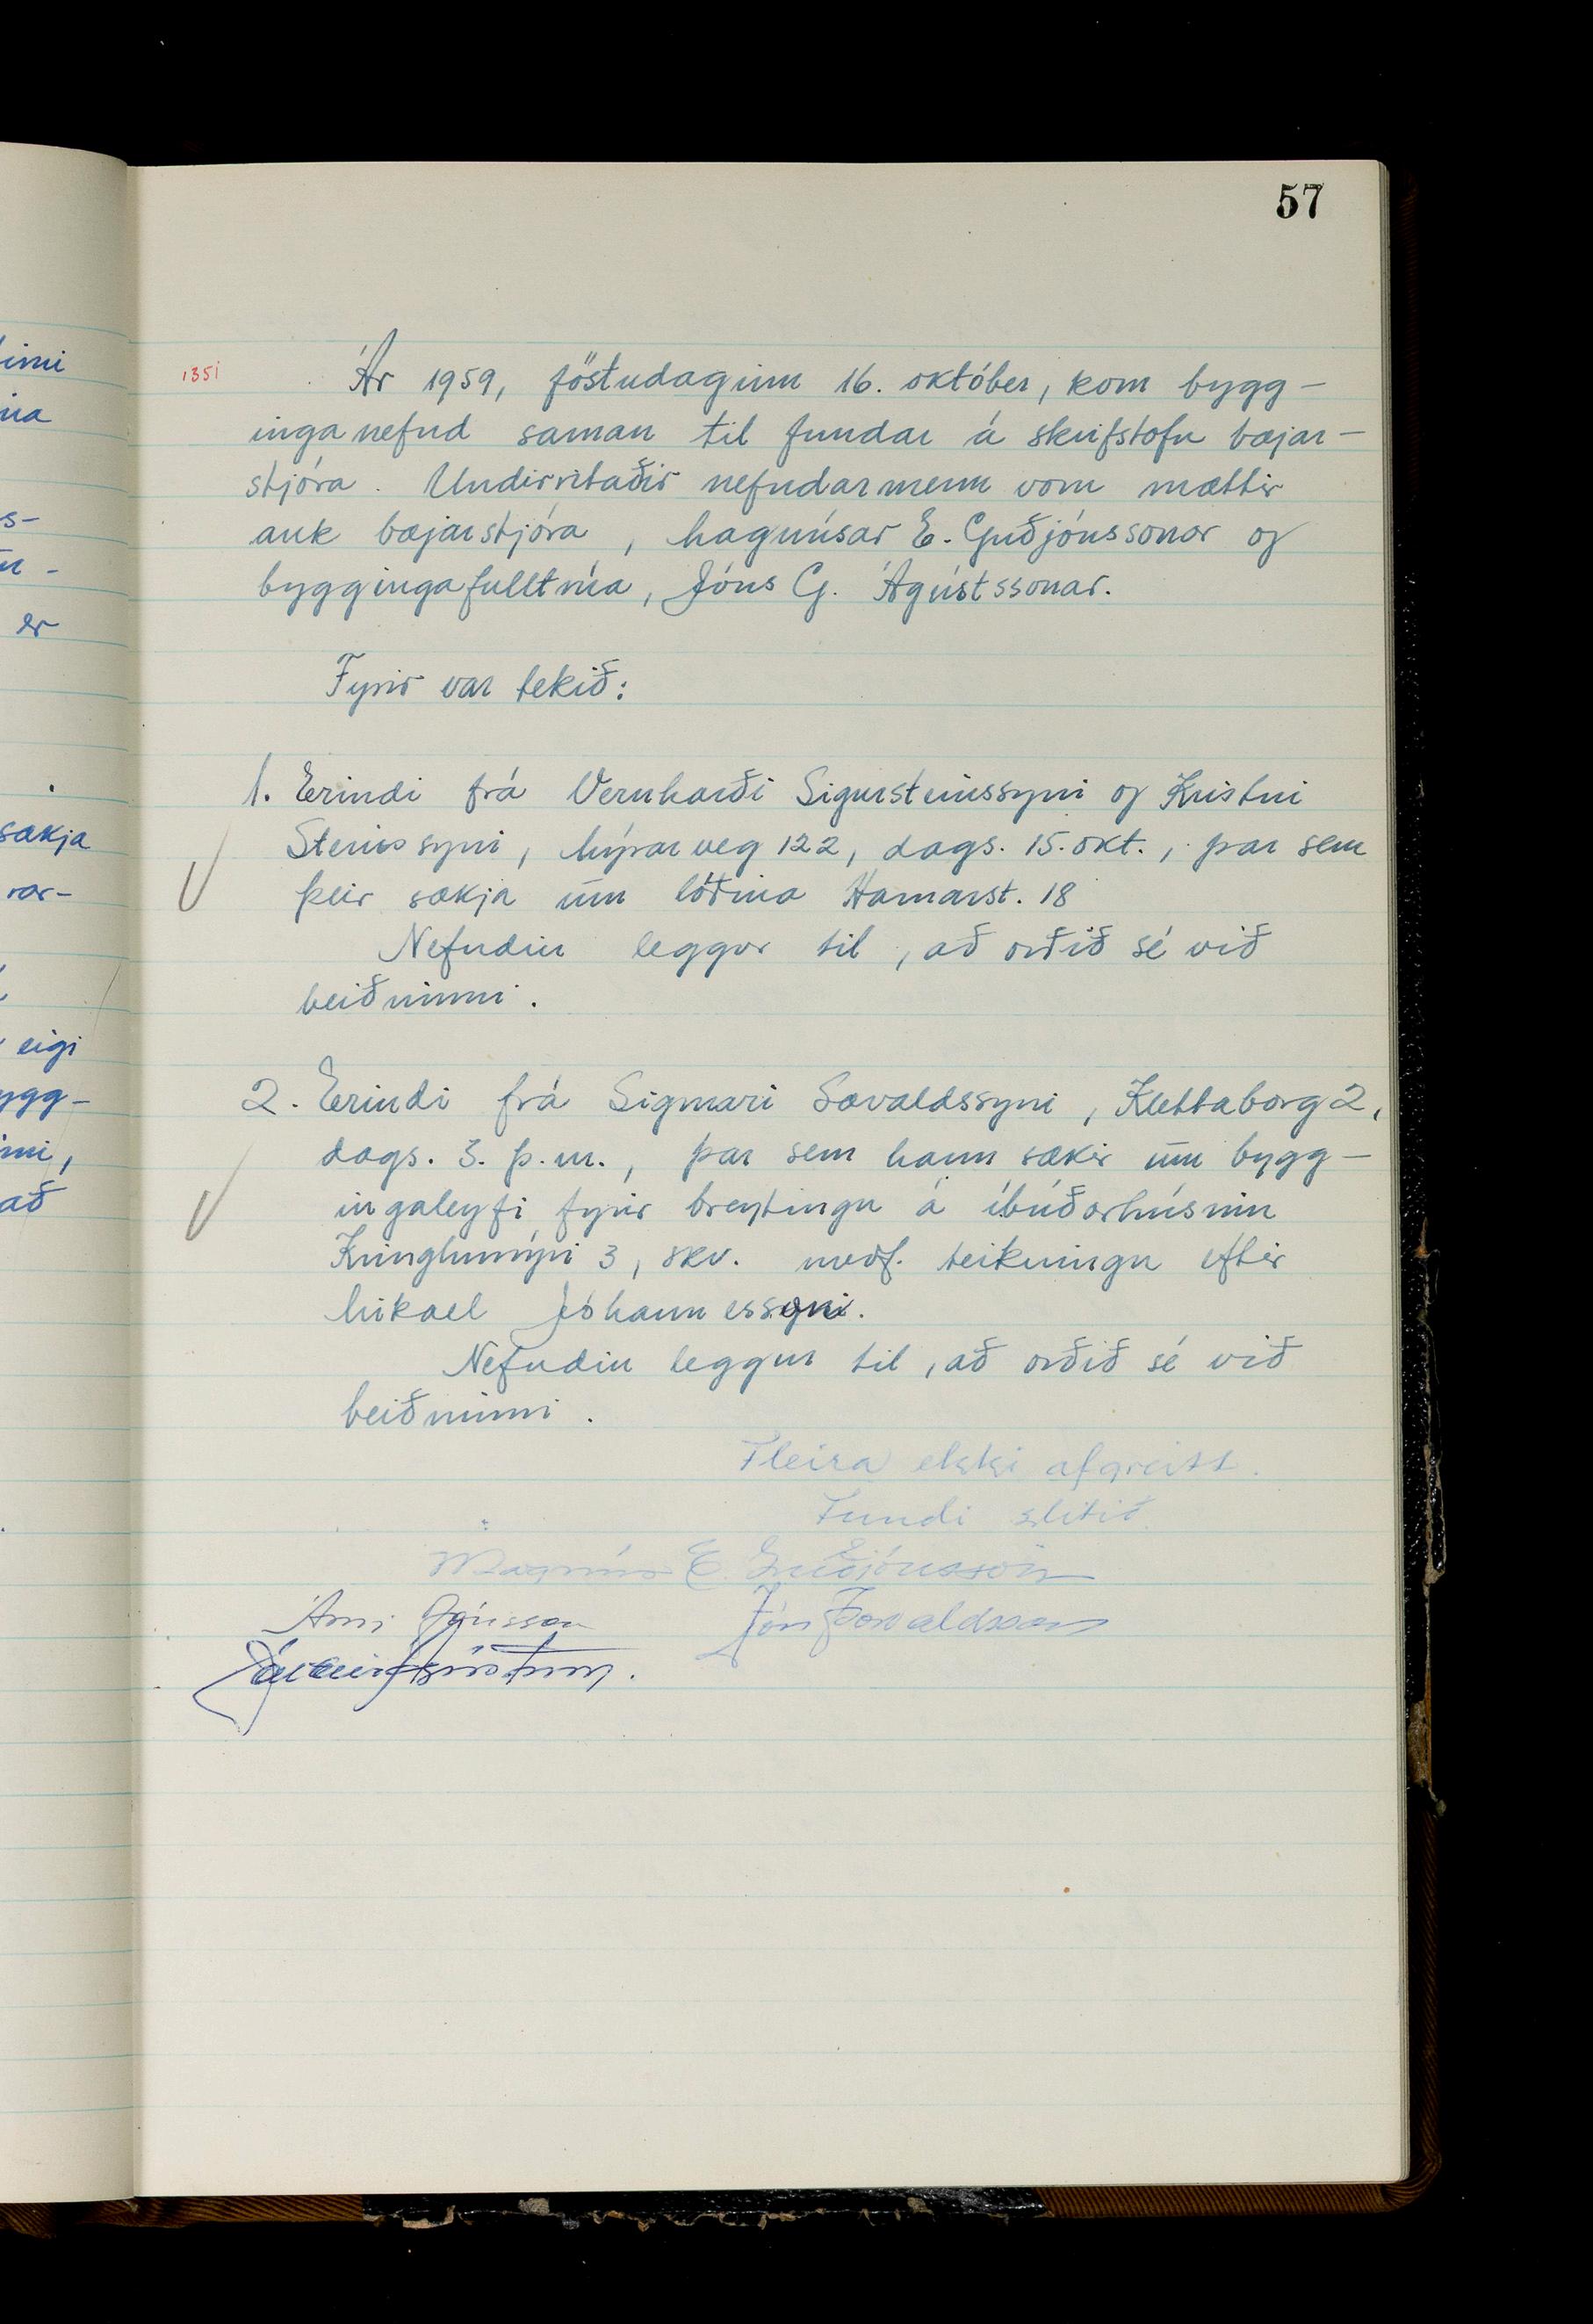 57
1351
Ár 1959, föstudaginn 16. október, kom bygg-
inganefnd saman til fundar á skrifstofu bæjar-
stjóra. Undirritaðir nefndarmenn voru mættir
auk bæjarstjóra, Magnúsar E. Guðjónssonar og
byggingafulltrúa, Jóns G. Ágústssonar.
Fyrir var tekið:
1. Erindi frá Vernharði Sigursteinssyni og Kristni
Steinssyni, Mýrarveg 122, dags. 15. okt., þar sem
þeir sækja um lóðina Hamarst. 18
Nefndin leggur til, að orðið sé við
beiðninni.
2. Erindi frá Sigmari Sævaldssyni, Klettaborg 2,
dags. 3. þ.m., þar sem hann sækir um bygg-
ingaleyfi fyrir breytingu á íbúðarhúsinu
Kringlumýri 3, skv. meðf. teikningu eftir
Mikael Jóhannessyni.
Nefndin leggur til, að orðið sé við
beiðninni.
Fleira ekki afgreitt.
Fundi slitið
Magnús E. Guðjónsson
Árni Jónsson Jón Þorvaldsson
imi
na
s-
er
sækja
rar-
eigi
ygg-
imi,
að